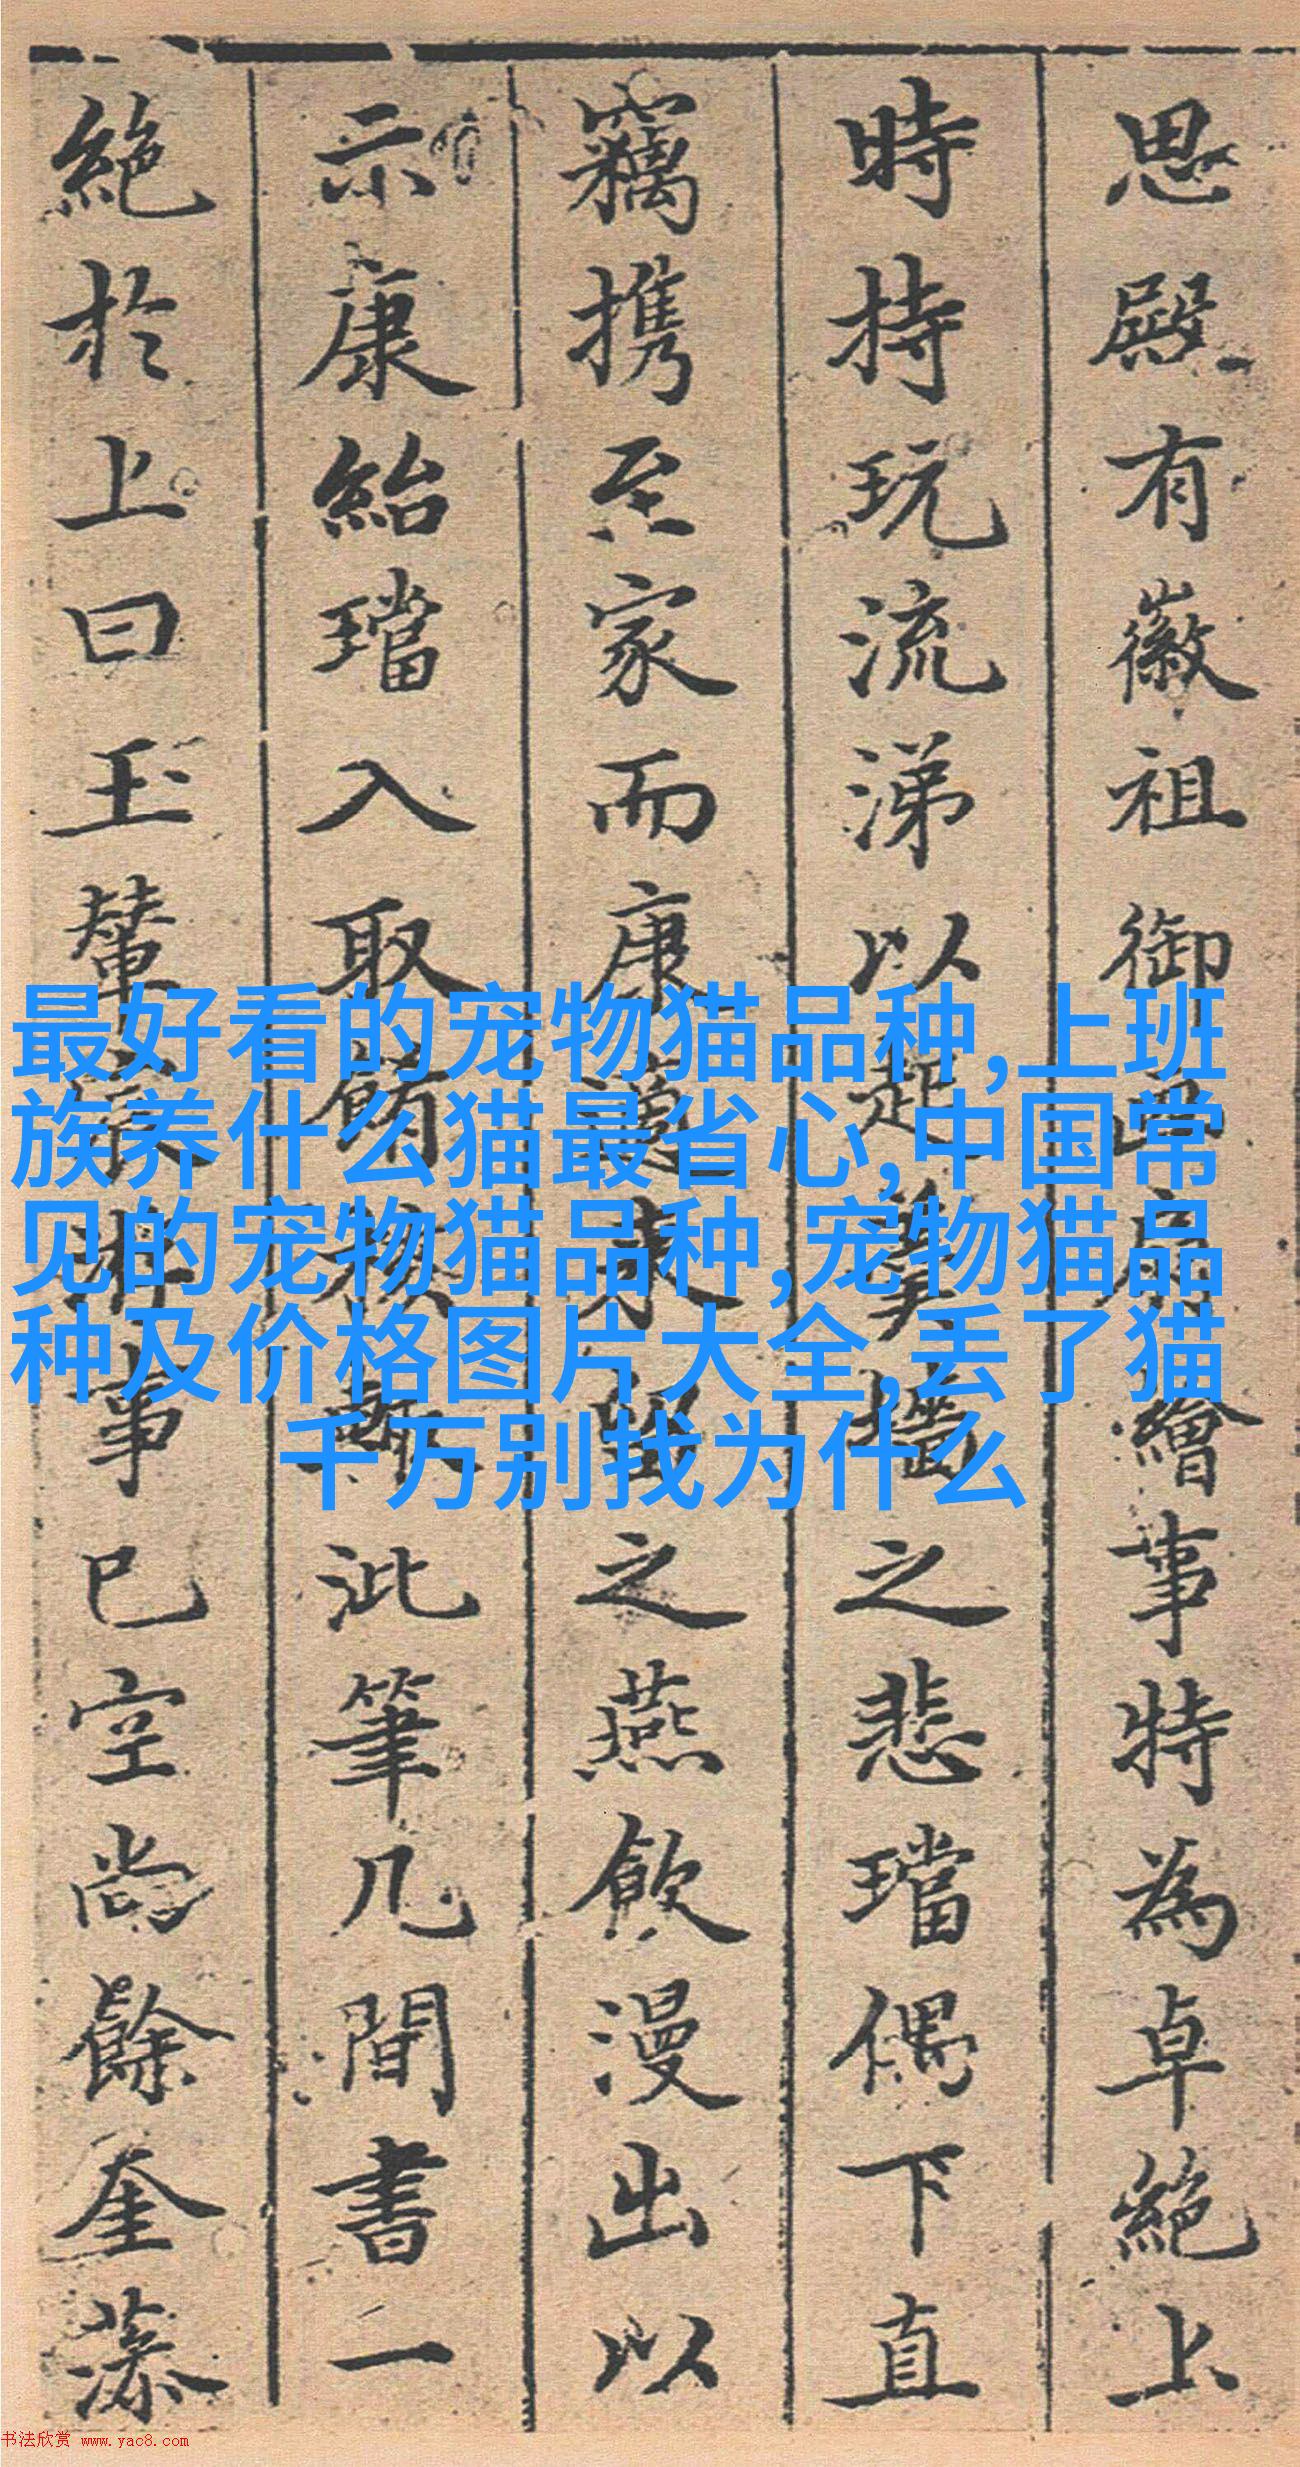 思殿有徽祖御畫扇繪事特為卓絕上
時持玩流涕以起羹墻之悲璫偶下直
竊携至家而康適來留之燕飲漫出以
示康紿璫入取殽核輒泚筆几間書一
絕於上曰玉輦宸遊事已空尚餘奎藻
最好看的宠物猫品种,上班
族养什么猫最省心,中国常
见的宠物猫品种,宠物猫品
种及价格图片大全,丢了猫
千万别找为什么
书法欣赏 www.yac8.com